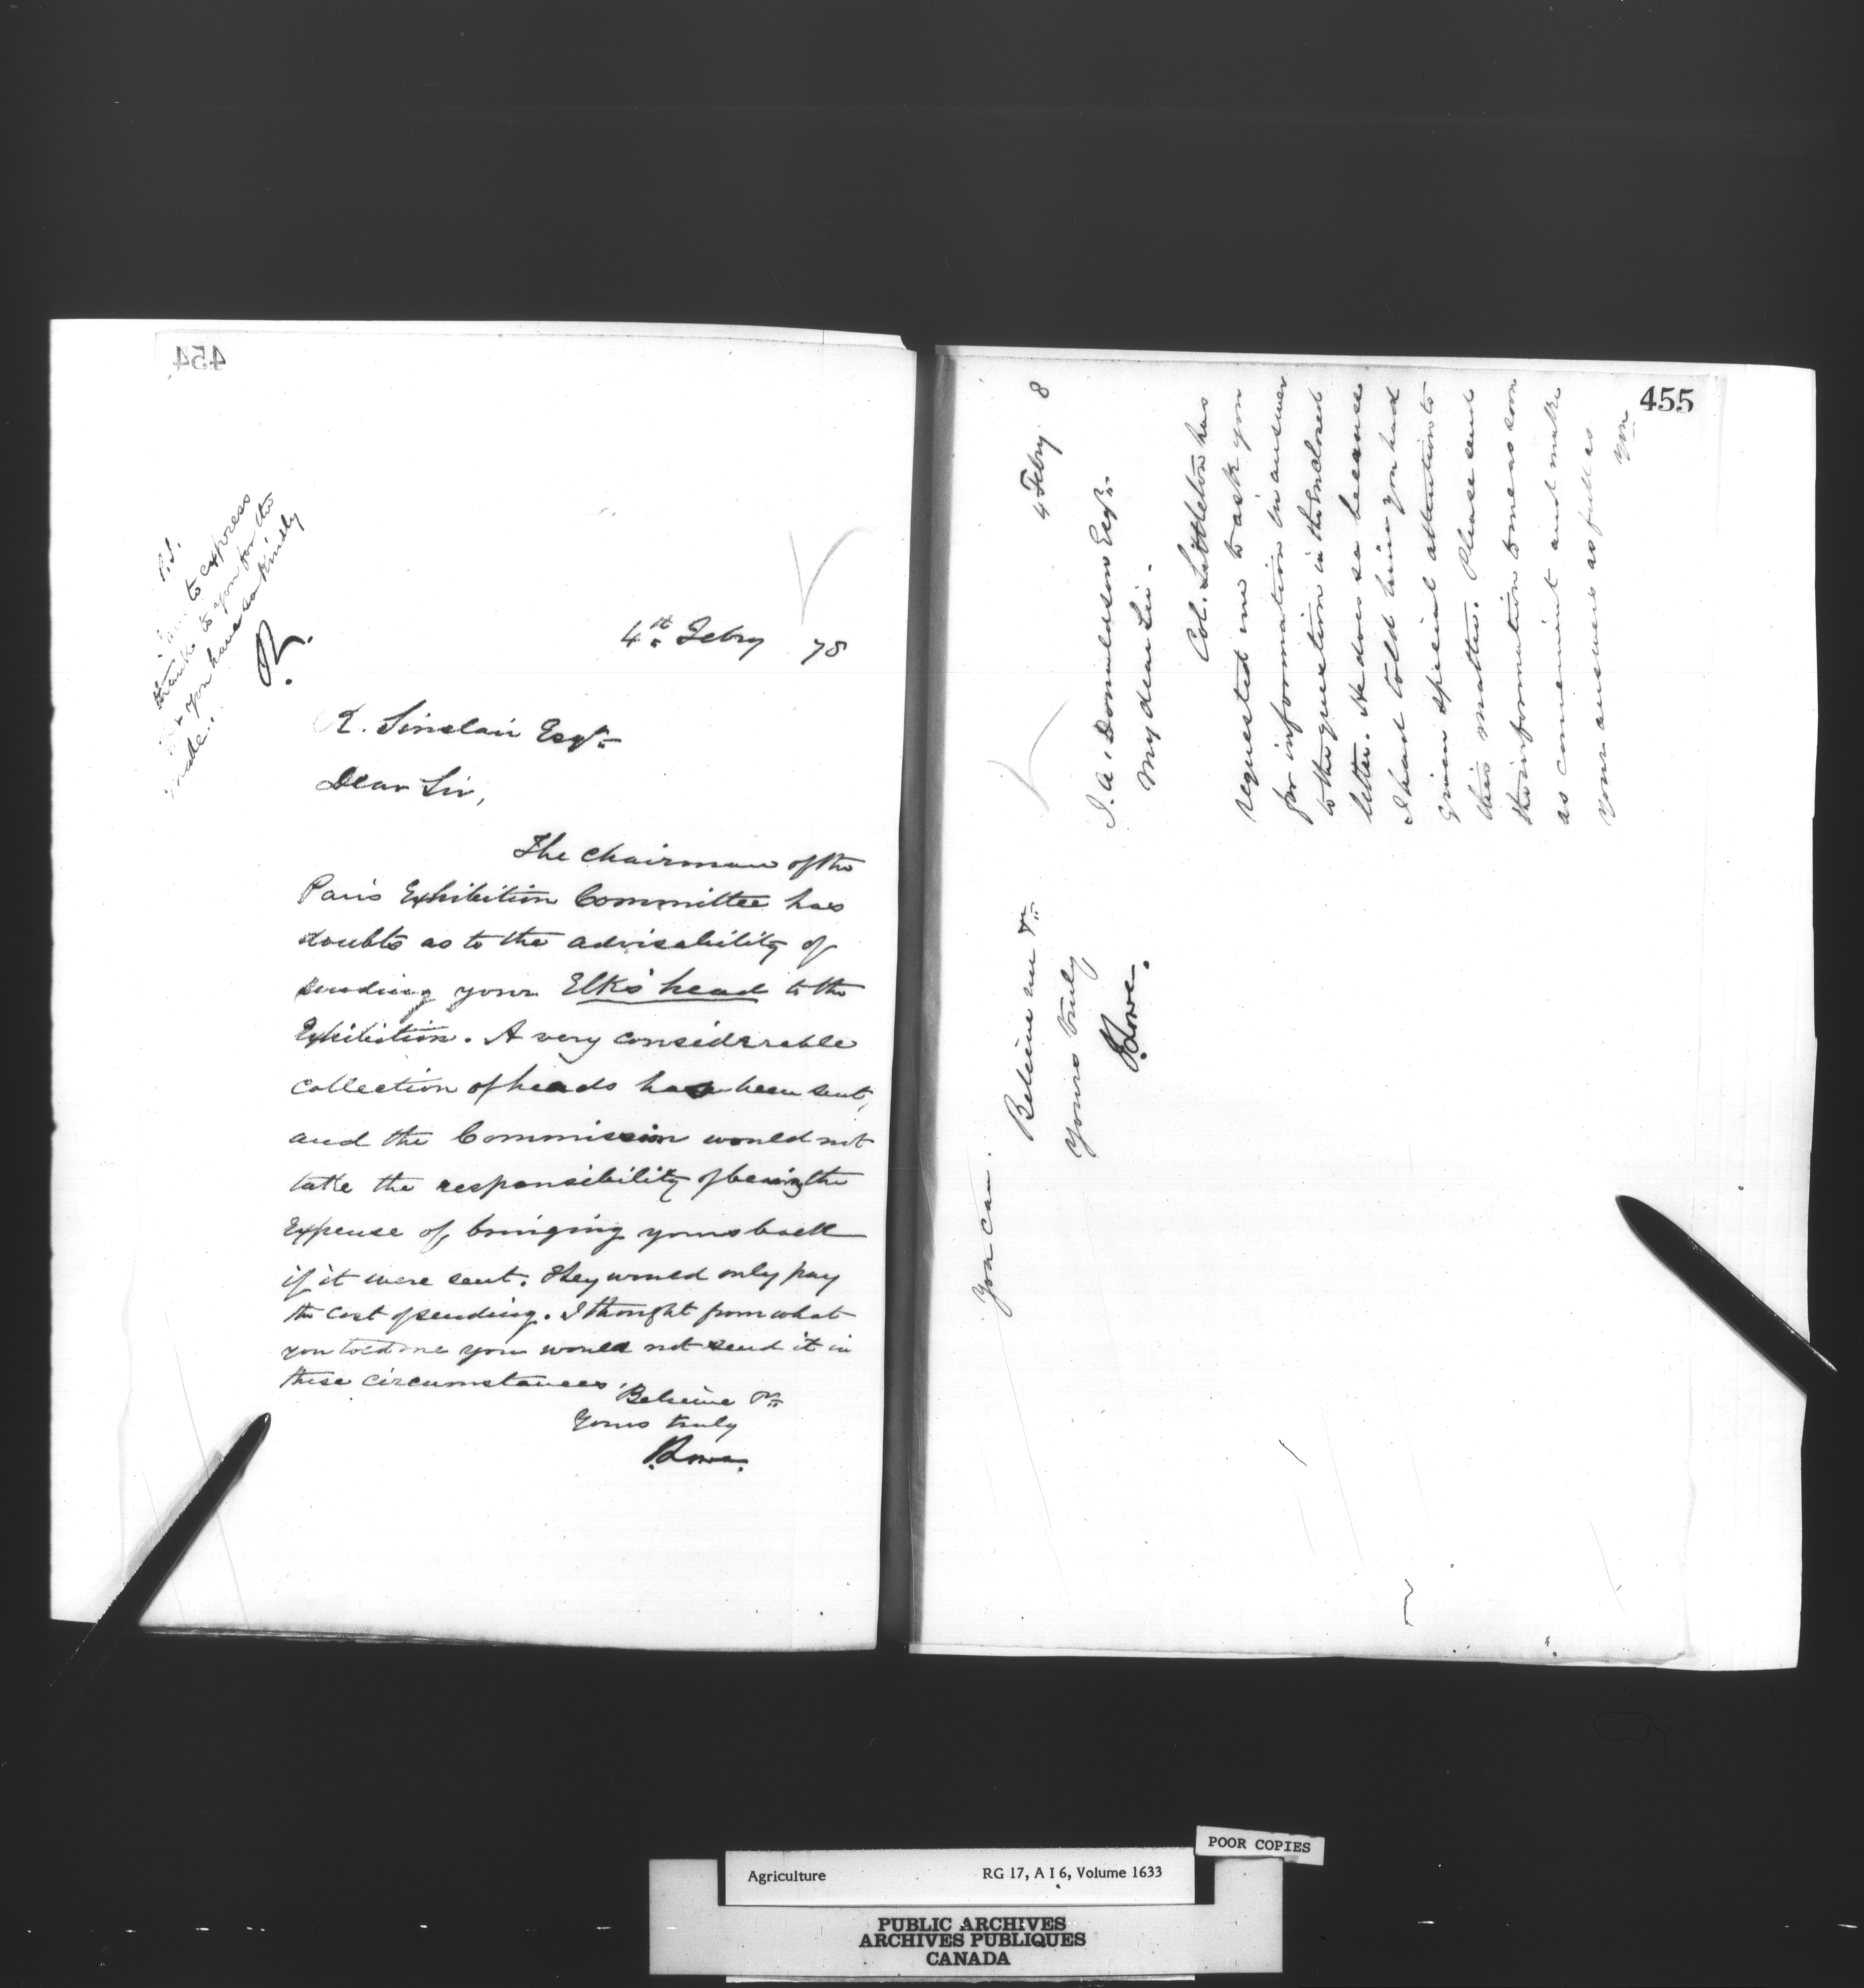 454
P.S.
I am to express
thanks to you for the
you have so kindly
made.
R.
4th Febry 78
R. Sinclair Esqr.
Dear Sir,
The chairman of the
Paris Exhibition Committee has
doubts as to the advisability of
sending your Elk's head to the
Exhibition. A very considerable
collection of heads has been sent,
and the Commission would not
take the responsibility of being the
expense of bringing yours back
if it were sent. They would only pay
the cost of sending. I thought from what
you told me you would not send it in
these circumstances.
Believe me
Yours truly
Lowe.
455
4 Febry 8
J. A. Donaldson Esqr.
My dear Sir.
Col. Littleton has
requested me to ask you
for information in answer
to the question in the enclosed
letter. He does so because
I had told him you had
given special attention to
this matter. Please send
the information to me as soon
as convenient and make
your answers as full as
you
you can.
Believe me &c
Yours truly
Lowe.
POOR COPIES
Agriculture RG 17, A I 6, Volume 1633
PUBLIC ARCHIVES
ARCHIVES PUBLIQUES
CANADA